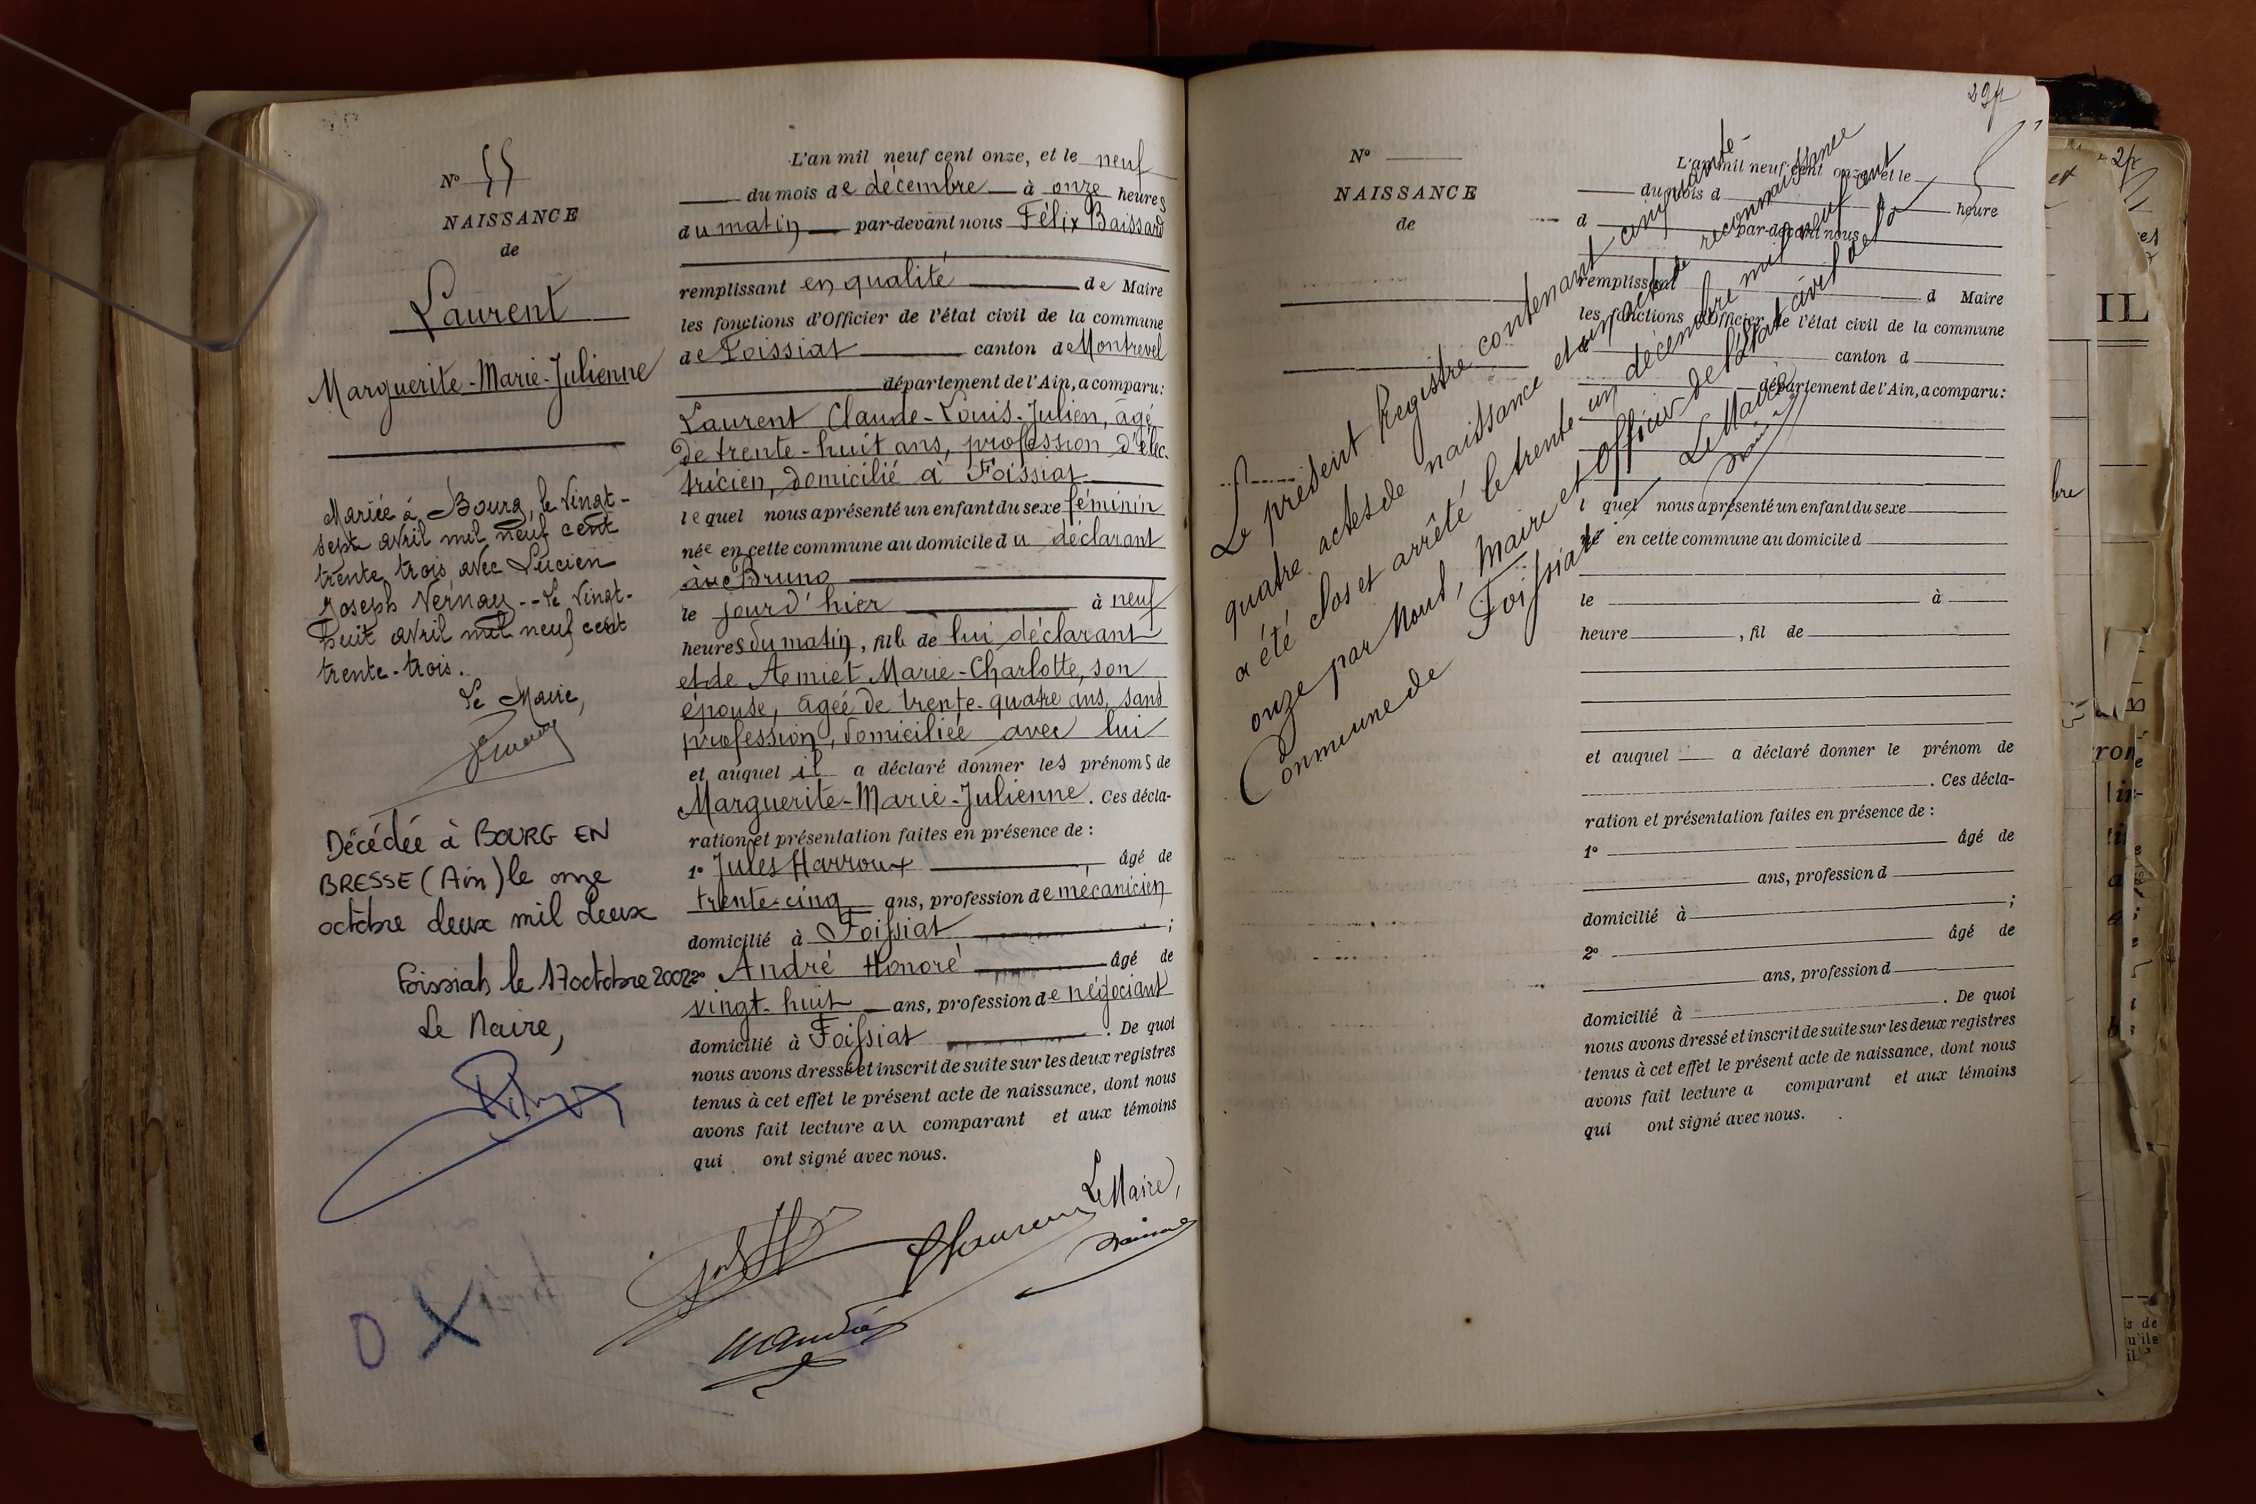 Nº 55
NAISSANCE
de
Laurent
Marguerite-Marie-Julienne
Mariée à Bourg, le vingt-
sept avril mil neuf cent
trente trois avec Lucien
Joseph Vernay -- Le vingt-
huit avril mil neuf cent
trente-trois.
Le Maire,
Décédée à BOURG EN
BRESSE (Ain) le onze
octobre deux mil deux
Foissiat le 17 octobre 2002
Le Maire,
O X
L'an mil neuf cent onze, et le neuf
du mois de décembre à onze heures
du matin par-devant nous Félix Baissard
remplissant en qualité de Maire
les fonctions d'Officier de l'état civil de la commune
de Foissiat canton de Montrevel
département de l'Ain, a comparu:
Laurent Claude-Louis-Julien, âgé
de trente-huit ans, profession d'élec-
tricien, domicilié à Foissiat
lequel nous a présenté un enfant du sexe féminin
née en cette commune au domicile du déclarant
Bruno
le jour d'hier à neuf
heures du matin, fille de lui déclarant
et de Marie-Charlotte, son
épouse, âgée de trente-quatre ans, sans
profession, domiciliée avec lui
et auquel il a déclaré donner les prénoms de
Marguerite-Marie-Julienne. Ces décla-
ration et présentation faites en présence de :
1º Jules Harroux âgé de
trente-cinq ans, profession de mécanicien
domicilié à Foissiat ;
2º André Honoré âgé de
vingt-huit ans, profession de négociant
domicilié à Foissiat . De quoi
nous avons dressé et inscrit de suite sur les deux registres
tenus à cet effet le présent acte de naissance, dont nous
avons fait lecture au comparant et aux témoins
qui ont signé avec nous.
Le Maire,
Nº
NAISSANCE
de
L'an mil neuf cent onze, et le
du mois d à heure
d par-devant nous
remplissant d Maire
les fonctions d'Officier de l'état civil de la commune
d canton d
département de l'Ain, a comparu:
l quel nous a présenté un enfant du sexe
né en cette commune au domicile d
le à
heure , fil de
et auquel a déclaré donner le prénom de
. Ces décla-
ration et présentation faites en présence de :
1º âgé de
ans, profession d
domicilié à ;
2º âgé de
ans, profession d
domicilié à . De quoi
nous avons dressé et inscrit de suite sur les deux registres
tenus à cet effet le présent acte de naissance, dont nous
avons fait lecture a comparant et aux témoins
qui ont signé avec nous.
Le présent Registre contenant cinquante-
quatre actes de naissance et un acte de reconnaissance
a été clos et arrêté le trente-un décembre mil neuf cent
onze par Nous, Maire et Officier de l'état civil de la
Commune de Foissiat
Le Maire
IL